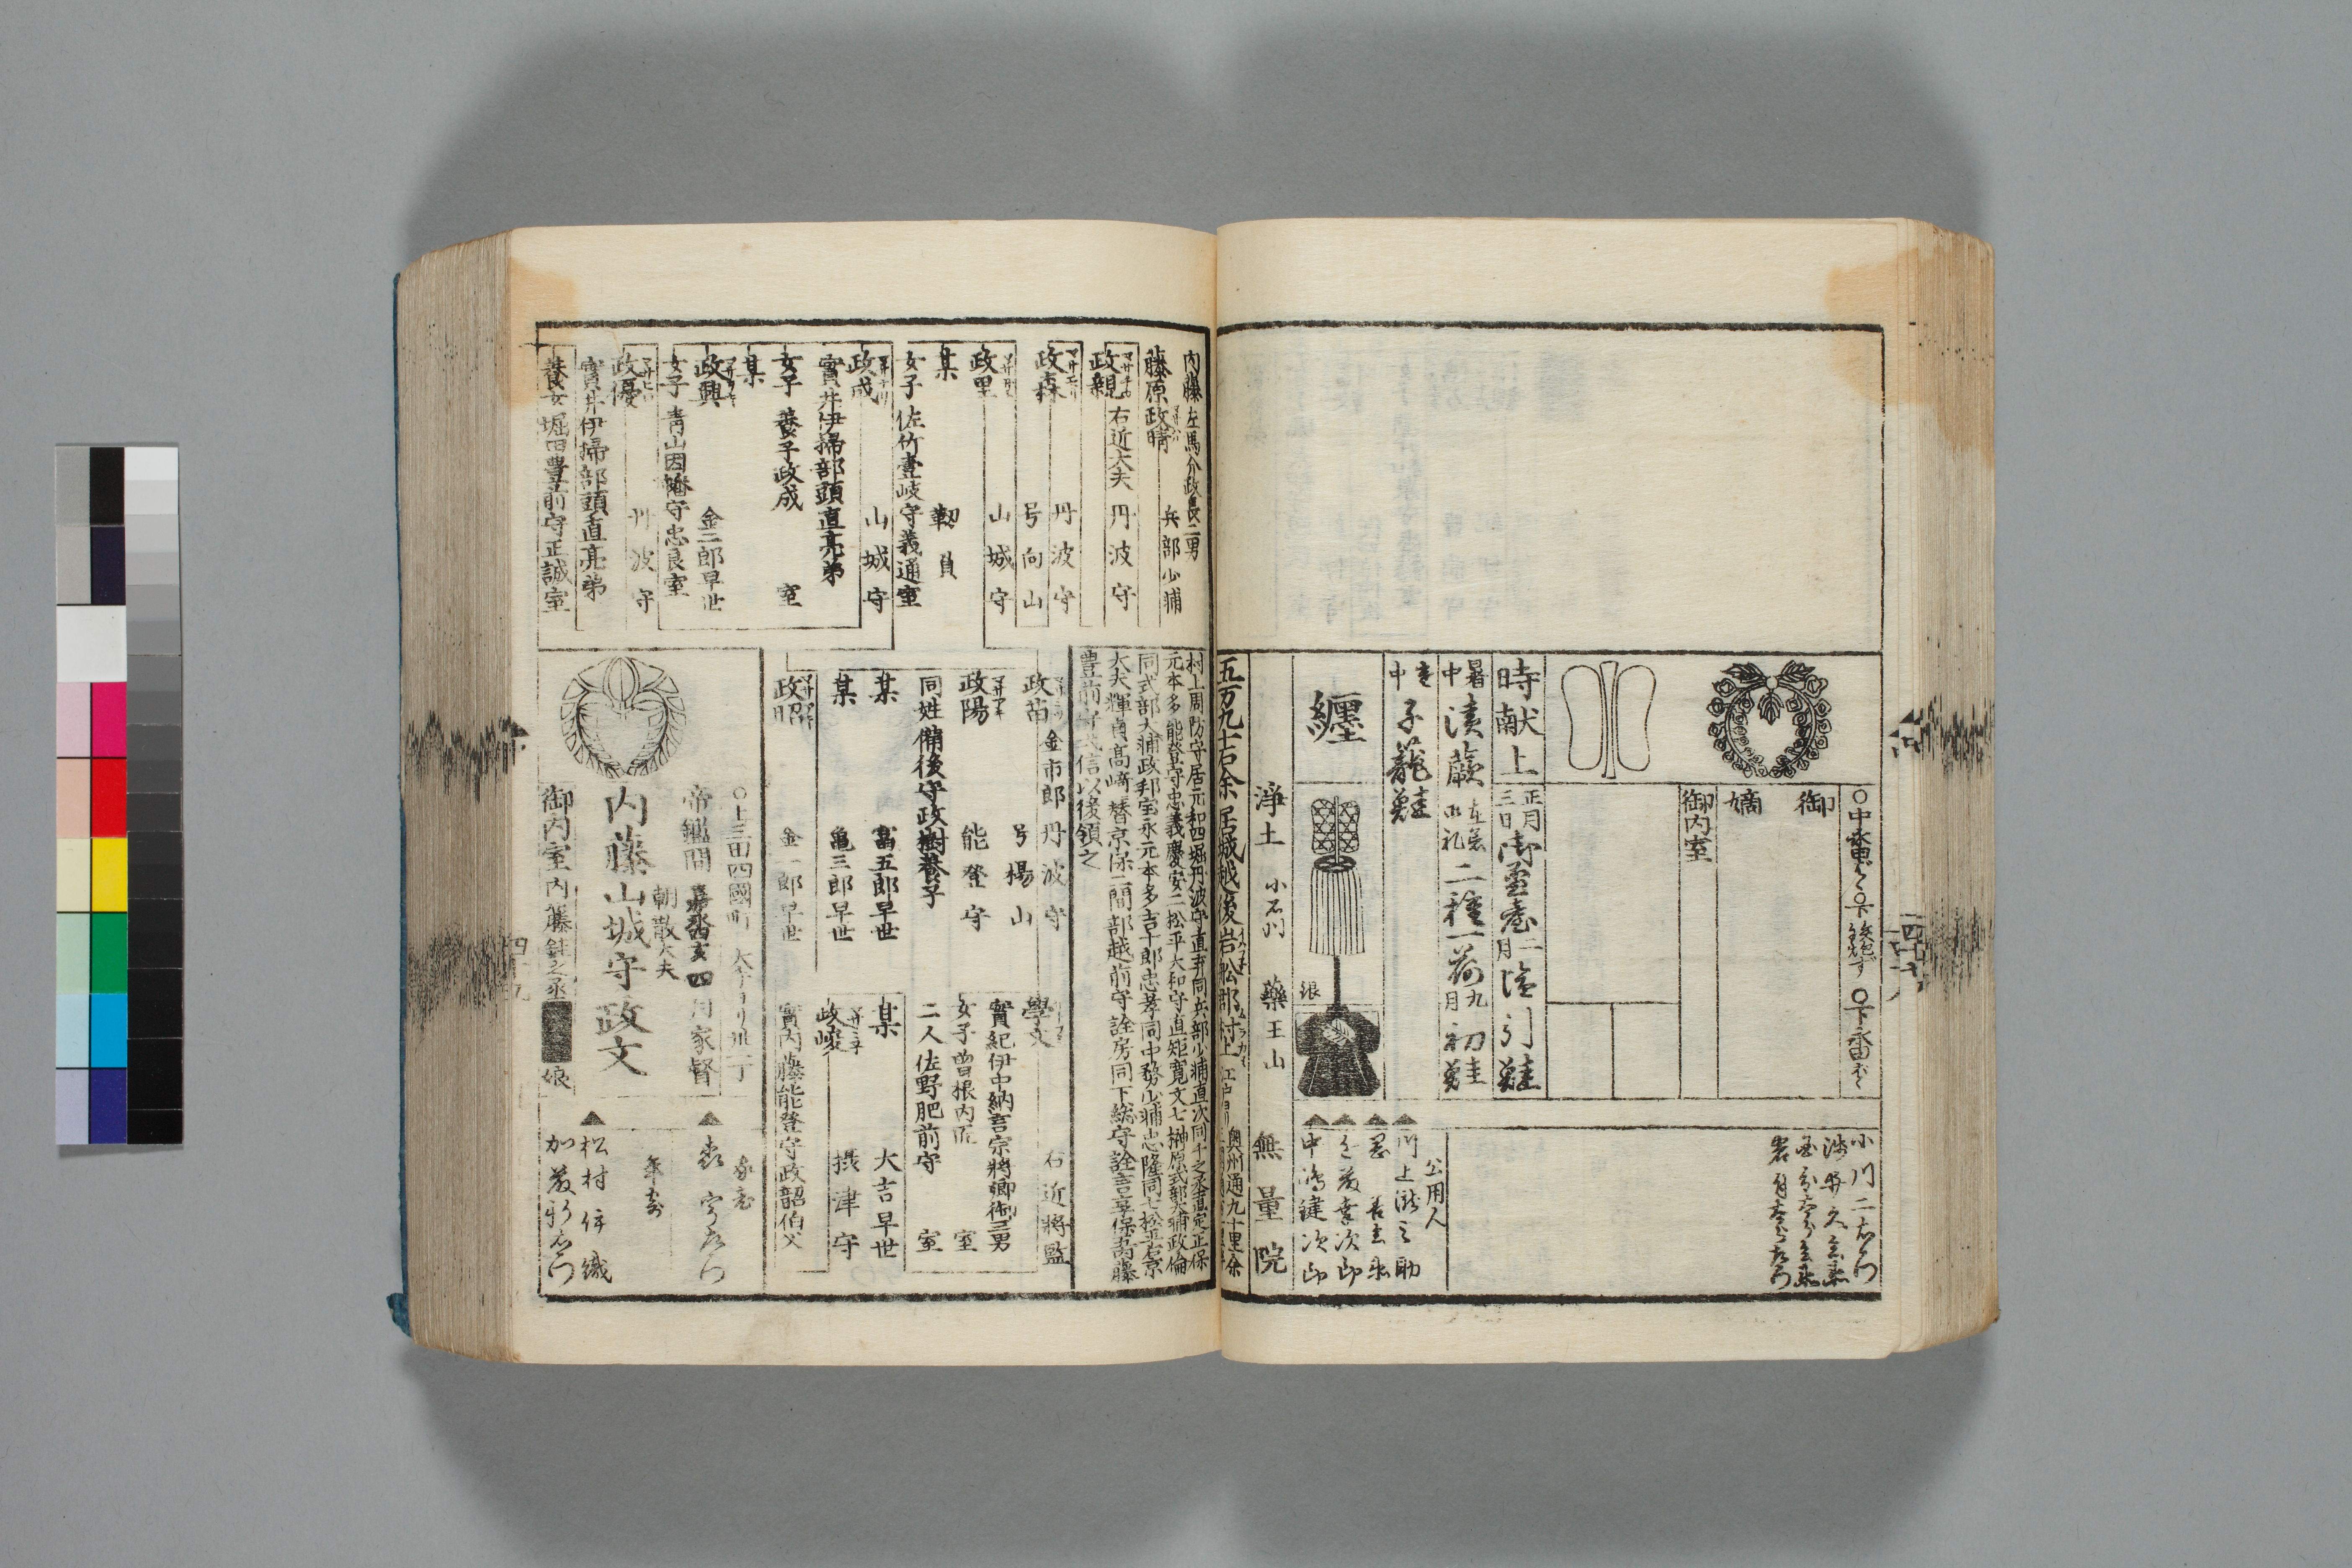 御
嫡
御内室
時献上
正月
三日
二月
塩引鮭
九月
初鮭
暑中
漬蕨
二種一荷
寒中
子籠鮭
纏
銀
小川二右衛門
公用人
川上瀧之助
中嶋健次郎
浄土
小石川
藥王山
無量院
五万九十石余
居城越後岩船郡村上
江戸ヨリ
奥州通九十里余
村上周防守居元和四堀丹波守直寄同兵部少浦直次同千之丞直定正保
元本多能登守忠義慶安二松平大和守直矩寛文七榊原式部大浦政倫
同式部大浦政邦宝永元本多吉十郎忠孝同中務少浦忠隆同七松平右京
大夫輝貞高崎ト替享保二間部越前守詮房同下総守詮言享保五内藤
豊前守弌信以後領之
内藤左馬介政長二男
藤原政晴
兵部少浦
政親
右近大夫
丹波守
政森
丹波守
号向山
政里
山城守
某
靱負
女子
佐竹壹岐守義通室
政成
山城守
實井伊掃部頭直亮弟
女子
養子政成室
某
政興
金二郎早世
女子
青山因幡守忠良室
政優
丹波守
實井伊掃部頭直亮弟
養女
堀田豊前守正誠室
政苗
金市郎
丹波守
号楊山
政陽
能登守
同姓備後守政樹養子
某
富五郎早世
某
亀三郎早世
政昭
金一郎早世
學文
右近將監
實紀伊中納言宗將卿御三男
女子
曽根内匠室
二人佐野肥前守室
某
大吉早世
政峻
摂津守
實内藤能登守政韶伯父
上三田四國町
帝鑑間
四月家督
朝散大夫
内藤山城守政文
御内室
内藤
娘
年寄
松村伊織